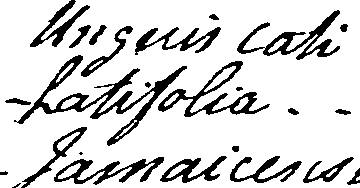 Unguis cati
-Latifolia - -
-Jamaicensi